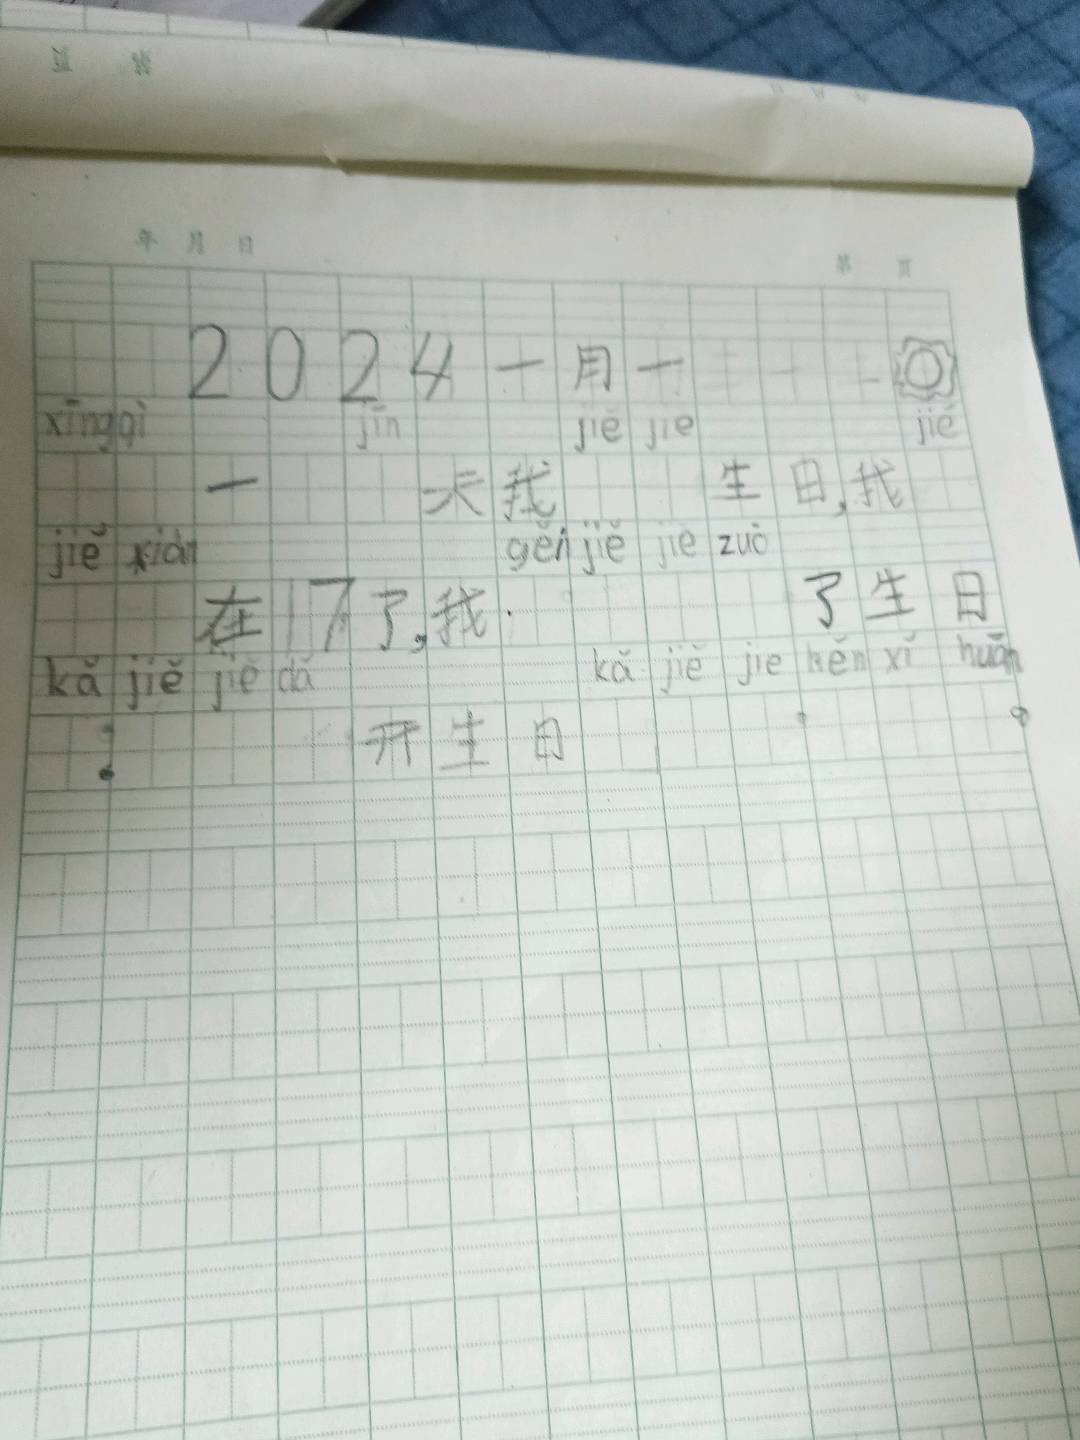 年 月 日
第 页
2024一月一
xīngqì jīn jiě jie jiě
一 天我 生日,我
jiě xiàn gěi jiě jie zuò
在17了,我 了生日
kǎ jiě jiě dǎ kǎ jiě jie hěn xǐ huān
开生日